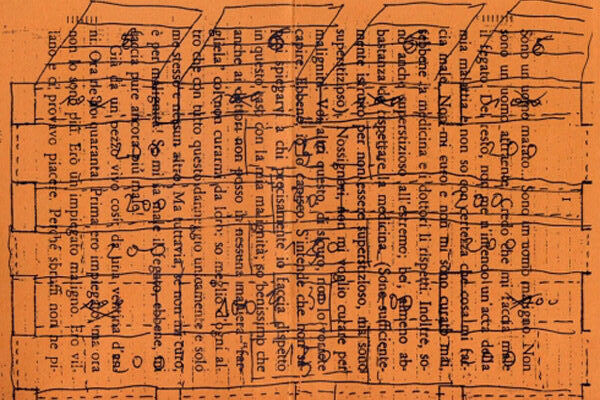 Sono un uomo malato... Sono un uomo Non
sono un uomo attraente. Credo che mi faccia male
il fegato. Del resto, non me n'intendo un'acca della
mia malattia e non so con certezza che cosa mi fac-
cia male. Non mi curo e non mi sono curato mai,
sebbene la medicina e i dottori li rispetti. Inoltre, so-
no anche superstizioso all'estremo; be', almeno ab-
bastanza da rispettare la medicina. (Sono sufficente-
mente istruito per non essere superstizioso, ma sono
superstizioso). Nossignori, non mi voglio curare per
malignità. Voi altri questo, di sicuro, non lo volete
capire. Ebbene, io lo capisco. S'intende che non
spiegarvi a chi precisamente io faccia dispetto
in questo caso con la mia malignità; so benissimo che
anche ai dottori non posso in nessuna maniera «far-
gliela» col non curarmi da loro; so meglio d'ogni al-
tro che con tutto questo danneggio unicamente e solo
me stesso e nessun altro. Ma tuttavia, se non mi curo,
è per malignità! Se mi fa male il fegato, ebbene, mi
faccia pure ancora più male!
Già da un pezzo vivo così: da una ventina d'an-
ni. Ora ne ho quaranta. Prima ero impiegato, ma ora
non lo sono più. Ero un impiegato maligno. Ero vil-
lano e ci provavo piacere. Perché sbruffi non ne pi-